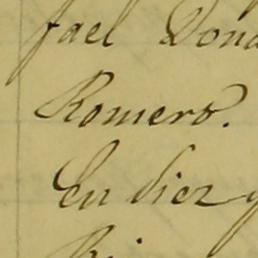 fael Dona
Romero.
En diez y